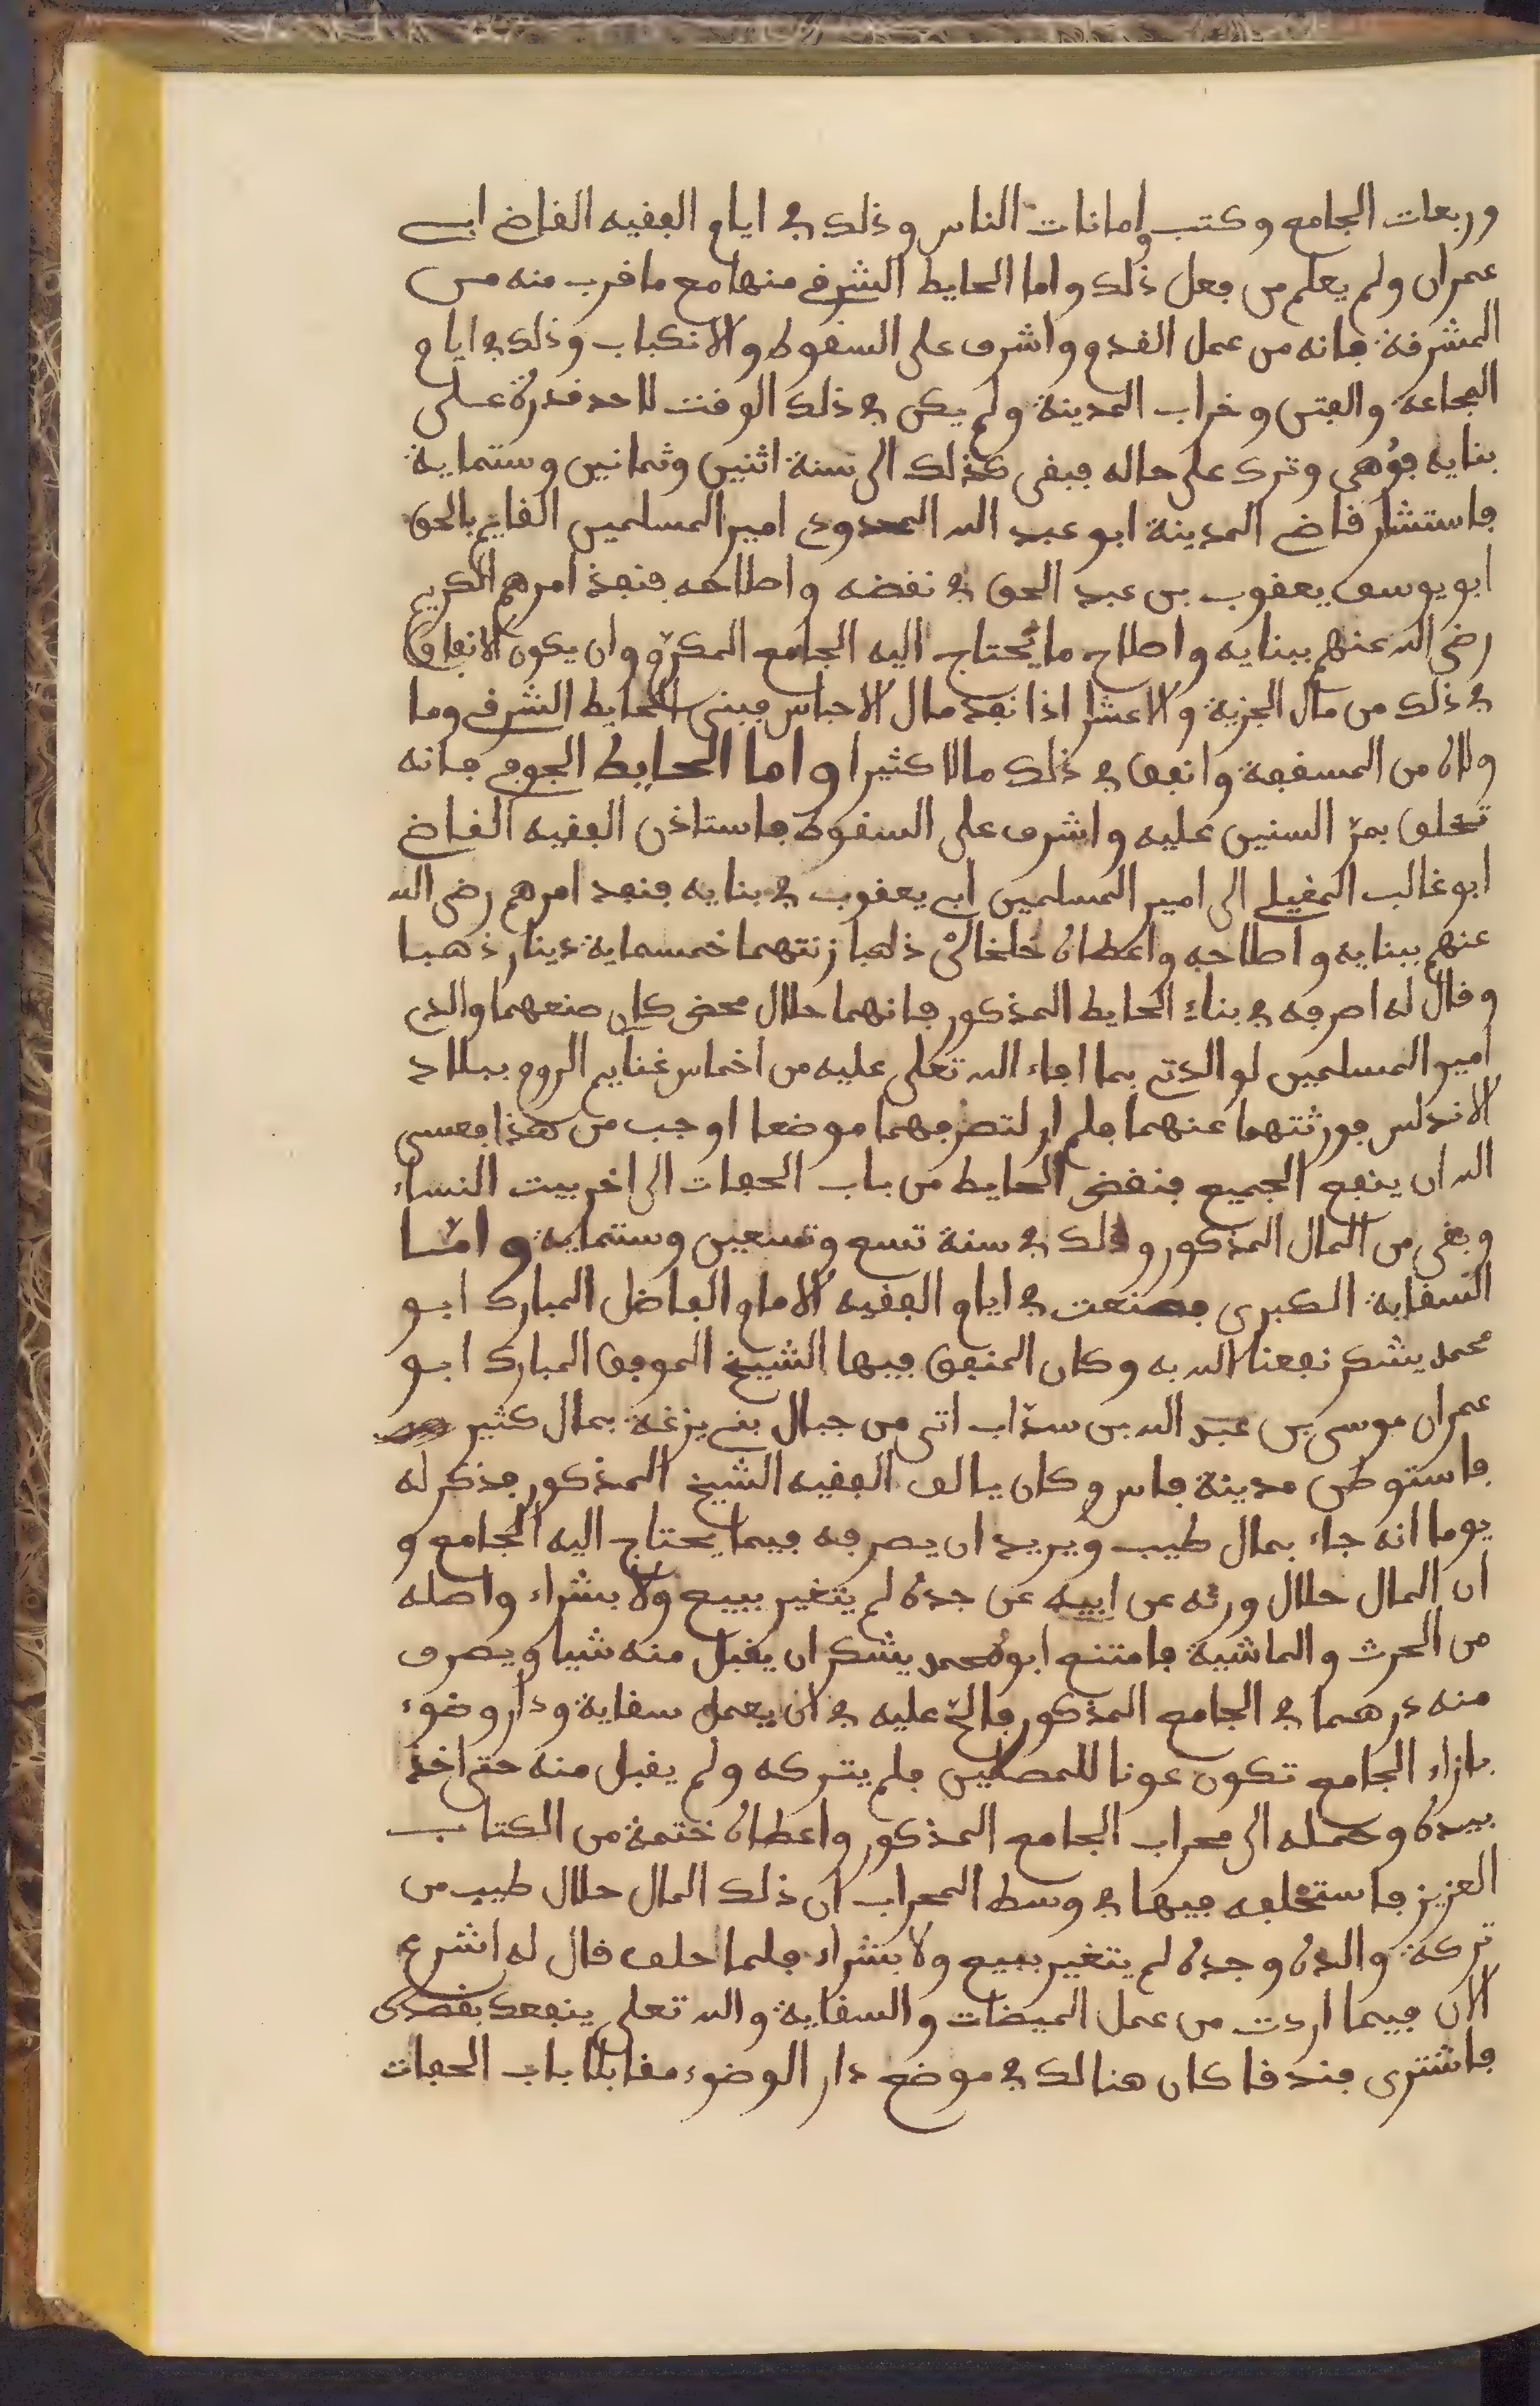 وربعات الجامع وكتب وامانات الناس وذلك في ايام الفقيه القاضي ابي
عمران ولم يعلم من فعل ذلك واما الحايط الشرقي منها مع ما قرب منه من
المشرفة فانه من عمل القدم واشرف على السقوط والانكباب وذلك في ايام
المجاعة والفتن وخراب المدينة ولم يكن في ذلك الوقت لاحد قدرة على
بنايه فوهى وترك على حاله فبقى كذلك الى سنة اثنين وثمانين وستماية
فاستشار قاضي المدينة ابو عبد الله المدوني امير المسلمين القايم بالحق
ابو يوسف يعقوب بن عبد الحق في نقضه واصلاحه فنفذ امرهم الكريم
رضى الله عنهم ببنايه واصلاح ما يحتاج اليه الجامع المكرّم وان يكون الانفاق
في ذلك من مال الجزية والاعشار اذا نفد مال الاحباس فبنى الحايط الشرقي وما
ولاه من المسقفة وانفق في ذلك مالا كثيرا واما الحايط الجوفي فانه
تخلق بمرّ السنين عليه واشرف على السقوط فاستاذن الفقيه القاضي
ابو غالب المغيلي الى امير المسلمين ابي يعقوب في بنايه فنفد امرهم رضى الله
عنهم ببنايه واصلاحه واعطاه خلخالىْ ذهبا زنتهما خمسماية دينار ذهبا
وقال له اصرفه في بناء الحايط المذكور فانهما حلال محض كان صنعهما والدي
امير المسلمين لوالدتي بما افاء الله تعلى عليه من اخماس غنايم الروم ببلاد
الاندلس فورثتهما عنهما فلم ار لتصرفهما موضعا اوجب من هذا فعسى
الله ان ينفع الجميع فنقض الحايط من باب الحفات الى اخر بيت النساء
وبقى من المال المذكور وذلك في سنة تسع وتسعين وستماية وامّا
السقاية الكبرى فصنعت في ايام الفقيه الامام الفاضل المبارك ابو
محمد يشكر نفعنا الله به وكان المنفق فيها الشيخ الموفق المبارك ابو
عمران موسى بن عبد الله بن سدّاب اتى من جبال بني يزغة بمال كثير
فاستوطن مدينة فاس وكان يالف الفقيه الشيخ المذكور فذكر له
يوما انه جاء بمال طيب ويريد ان يصرفه فيما يحتاج اليه الجامع و
ان المال حلال ورثه عن ابيه عن جده لم يتغير ببيع ولا بشراء واصله
من الحرث والماشية فامتنع ابو محمد يشكر ان يقبل منه شيا ويصرف
منه درهما في الجامع المذكور فالحّ عليه في ان يعمل سقاية ودار وضوء
بازاء الجامع تكون عونا للمصلين فلم يتركه ولم يقبل منه حتى اخذ
بيده وحمله الى محراب الجامع المذكور واعطاه ختمة من الكتاب
العزيز فاستحلفه فيها في وسط المحراب ان ذلك المال حلال طيب من
تركة والده وجده لم يتغير ببيع ولا بشراء فلما حلف قال له اشرع
الان فيما اردت من عمل الميضات والسقاية والله تعلى ينفعك بقصدك
فاشترى فندقا كان هنالك في موضع دار الوضوء مقابلا باب الحفات